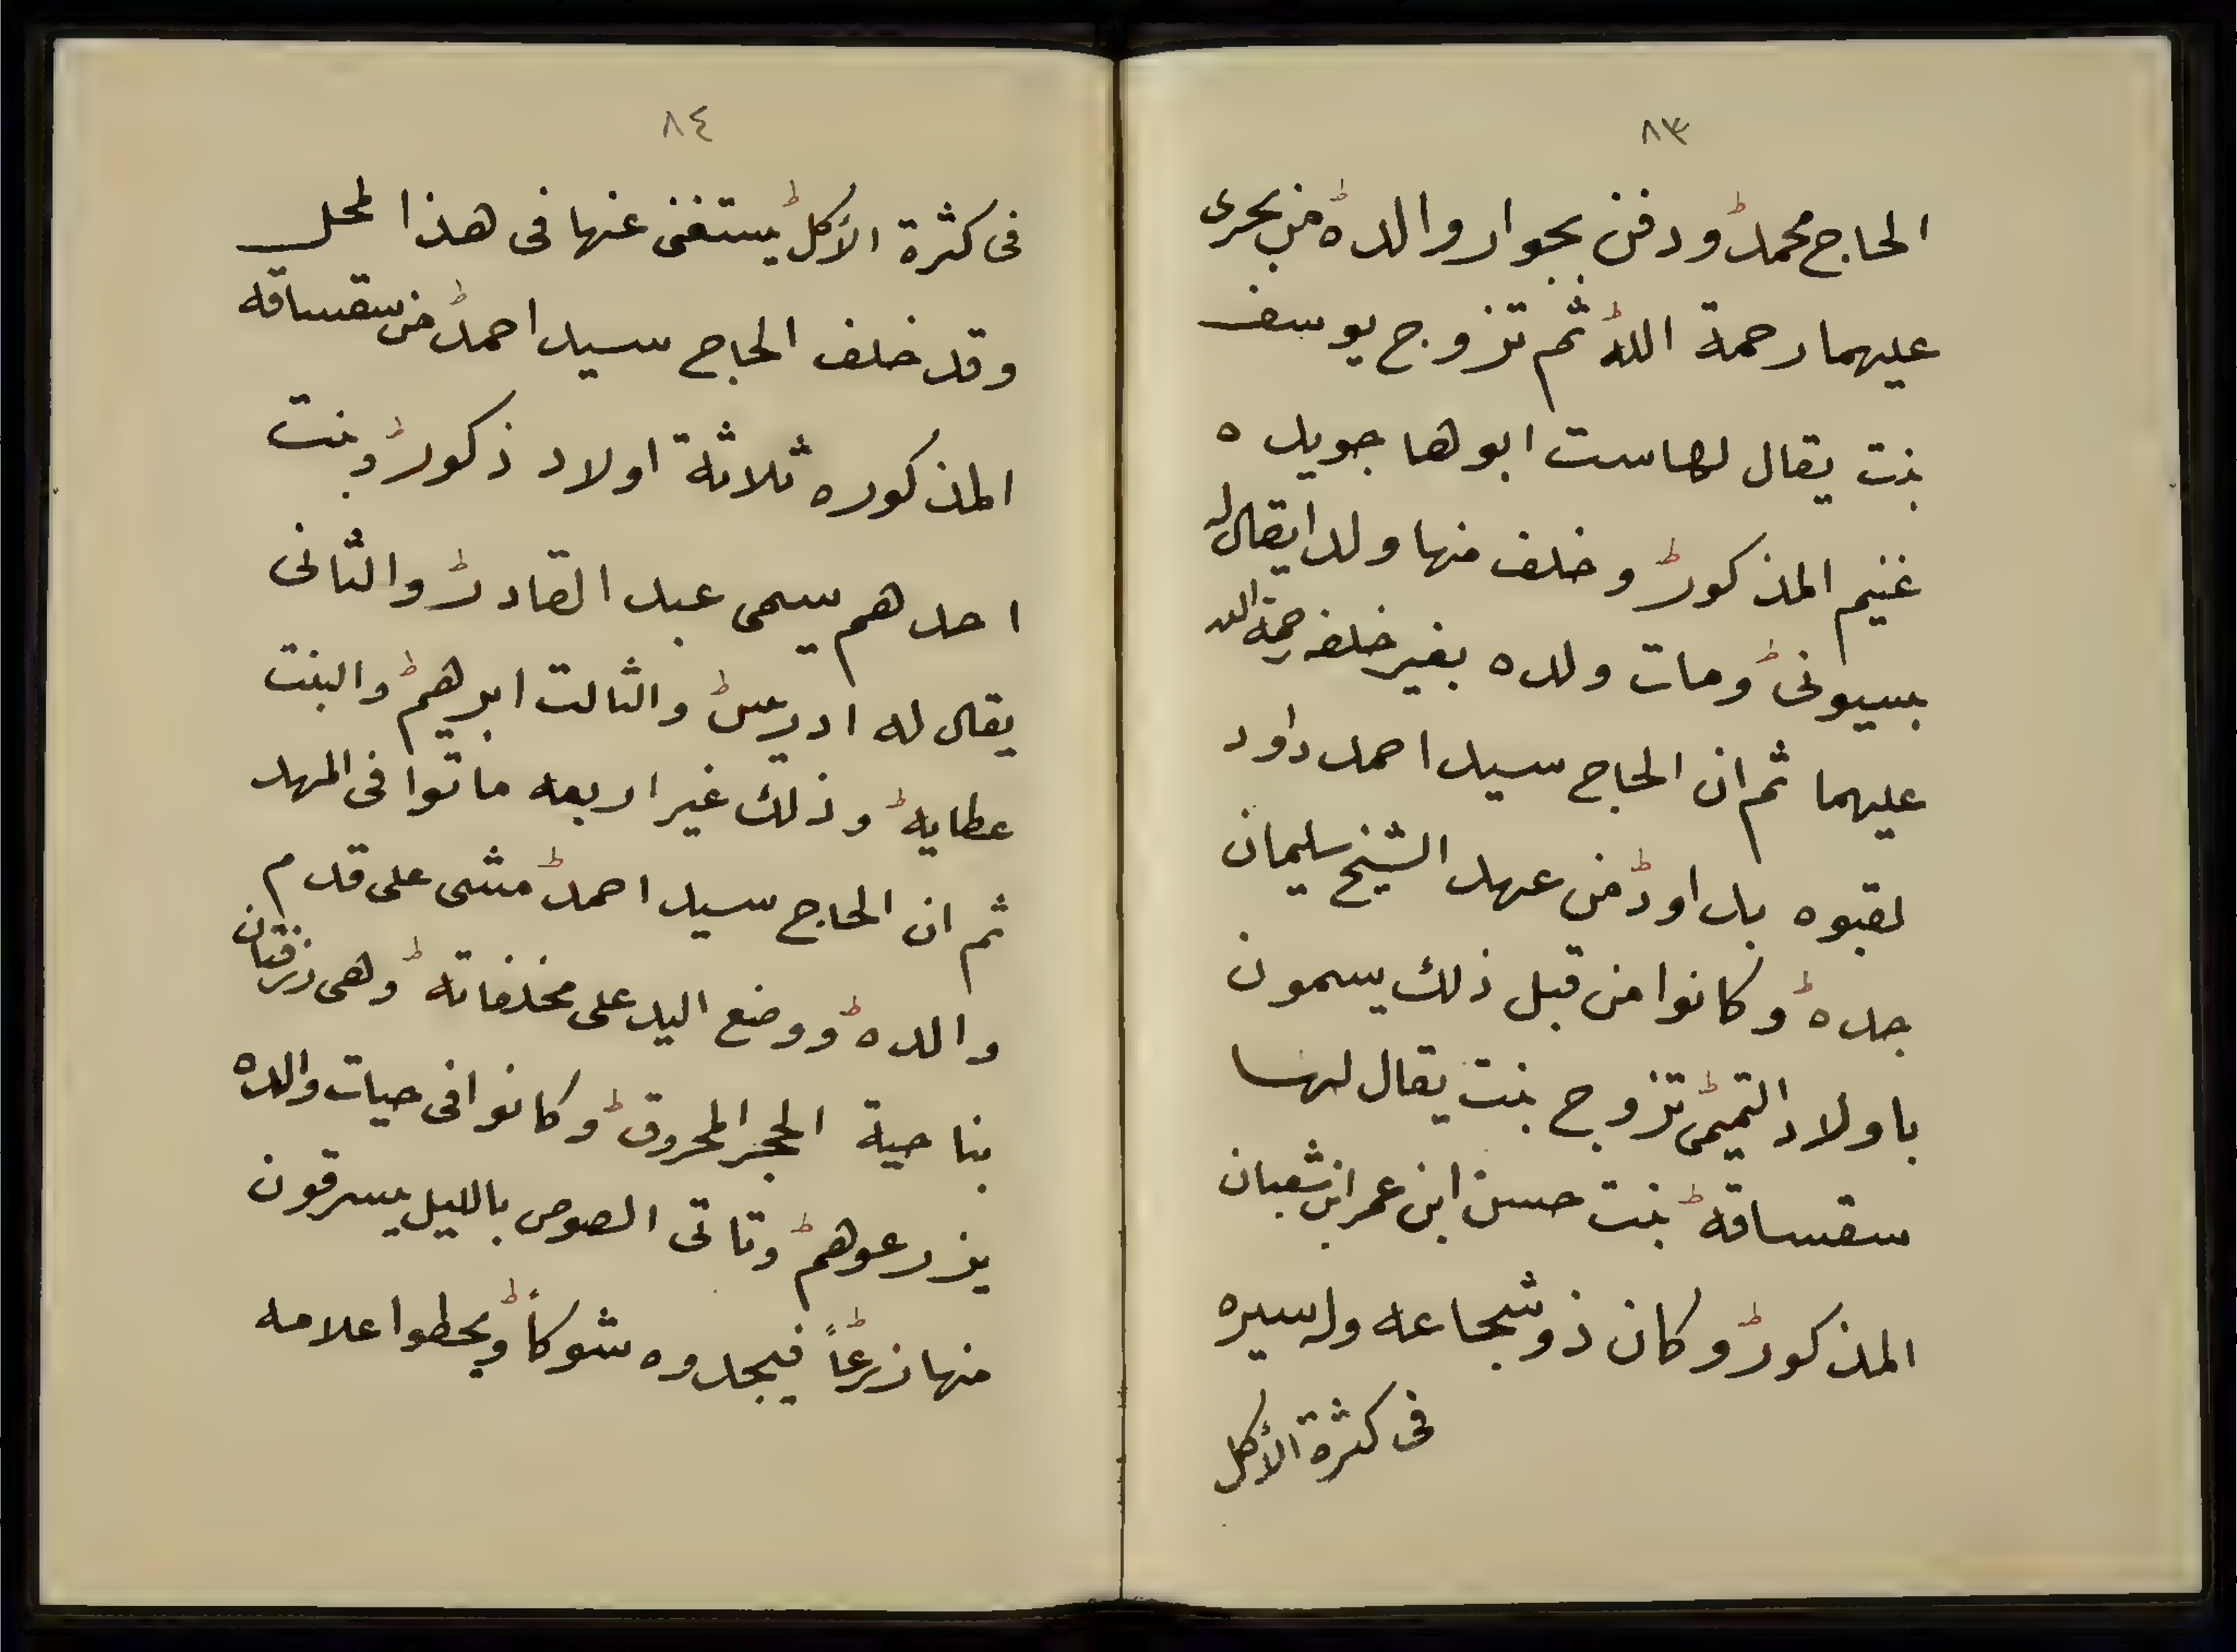 ٨٣
الحاج محمد ودفن بجوار والده من بحرى
عليهما رحمة الله ثم تزوج يوسف
بنت يقال لها ست ابوها جويده
غنيم المذكور وخلف منها ولدا يقال له
بسيونى ومات ولده بغير خلفه رحمة الله
عليهما ثم ان الحاج سيد احمد داود
لقبوه بداود من عهد الشيخ سليمان
جده وكانوا من قبل ذلك يسمون
باولاد التميمى تزوج بنت يقال لها
سقساقه بنت حسن ابن عمر ابن شعبان
المذكور وكان ذو شجاعه وله سيره
فى كثرة الأكل
٨٤
فى كثرة الأكل يستغنى عنها فى هذا لمحل
وقد خلف الحاج سيد احمد من سقساقه
المذكوره ثلاثة اولاد ذكور وبنت
احدهم يسمى عبد القادر والثانى
يقال له ادريس والثالت ابرهيم والبنت
عطايه وذلك غير اربعه ماتوا فى المهد
ثم ان الحاج سيد احمد مشى على قدم
والده ووضع اليد على مخلفاته وهى زرقتان
بناحية الحجر المحروق وكانوا فى حيات والده
يزرعوهم وتاتى الصوص بالليل يسرقون
منها زرعاً فيجدوه شوكاً ويحطوا علامه